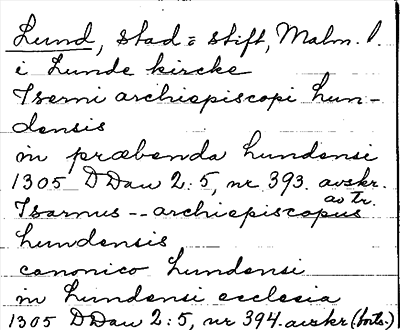 Lund, stad o stift, Malm. l.
i Lunde kircke
Iserni archiepiscopi Lun-
densis
in præbenda Lundensi
1305 DDan 2:5, nr 393. avskr.
av tr.
Isarnus -- archiepiscopus
Lundensis
canonico Lundensi
in Lundensi ecclesia
1305 DDan 2:5, nr 394. avskr (forts.)